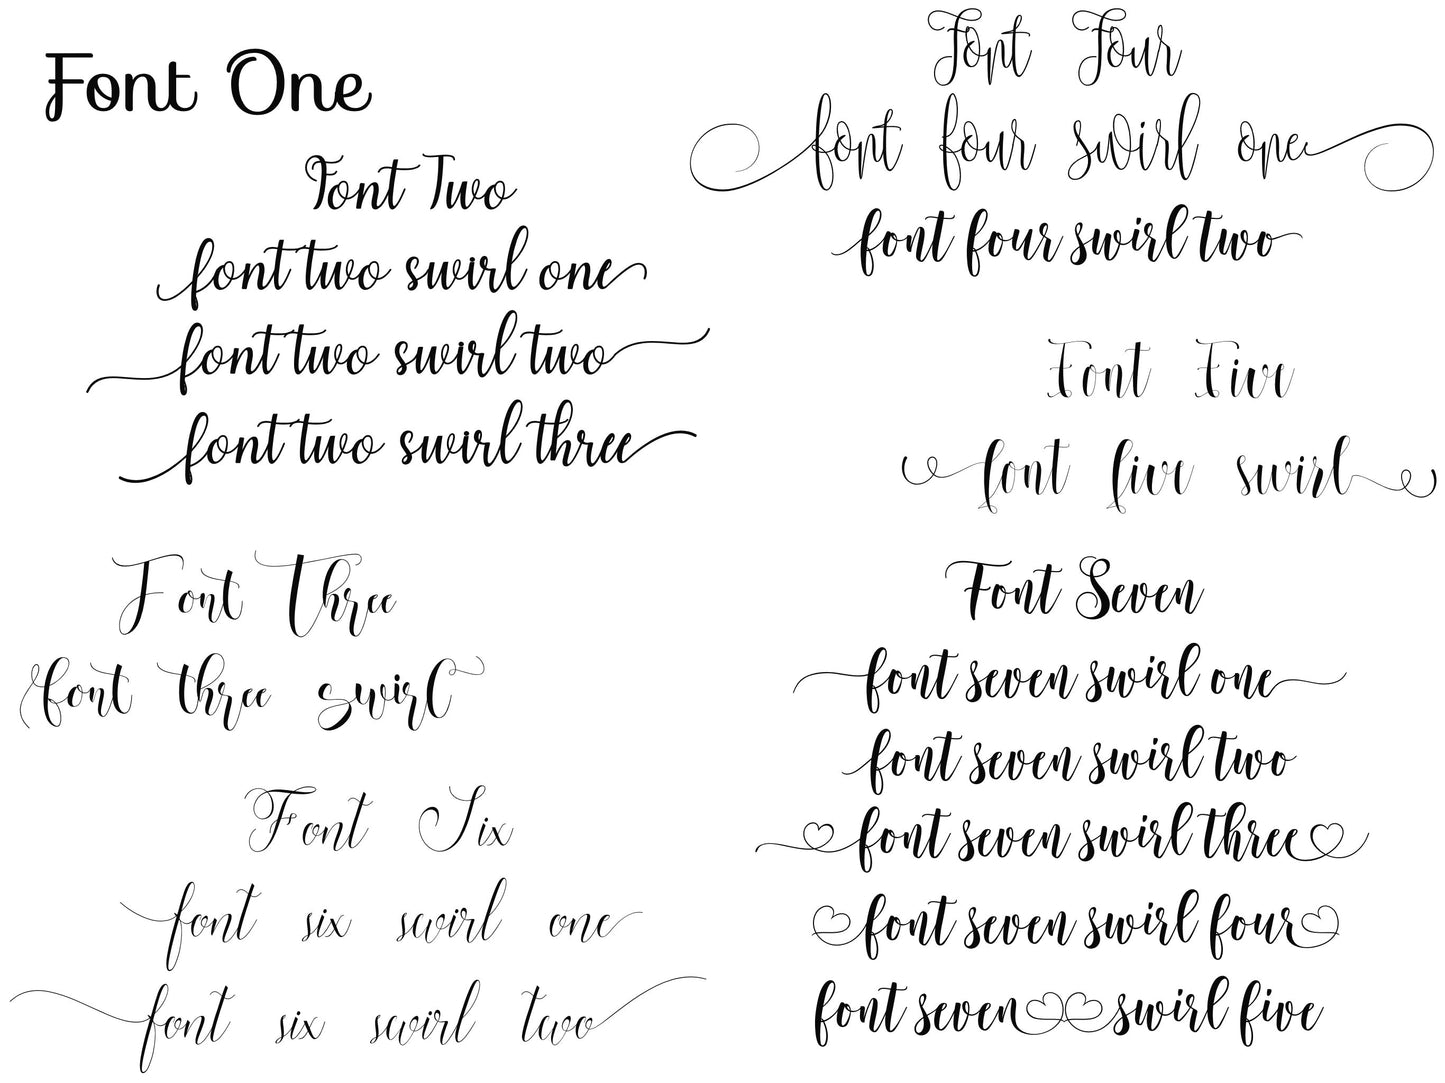 Font One
Font Two
font two swirl one
font two swirl two
font two swirl three
Font Three
font three swirl
Font Six
font six swirl one
font six swirl two
Font Four
font four swirl one
font four swirl two
Font Five
font five swirl
Font Seven
font seven swirl one
font seven swirl two
font seven swirl three
font seven swirl four
font seven swirl five